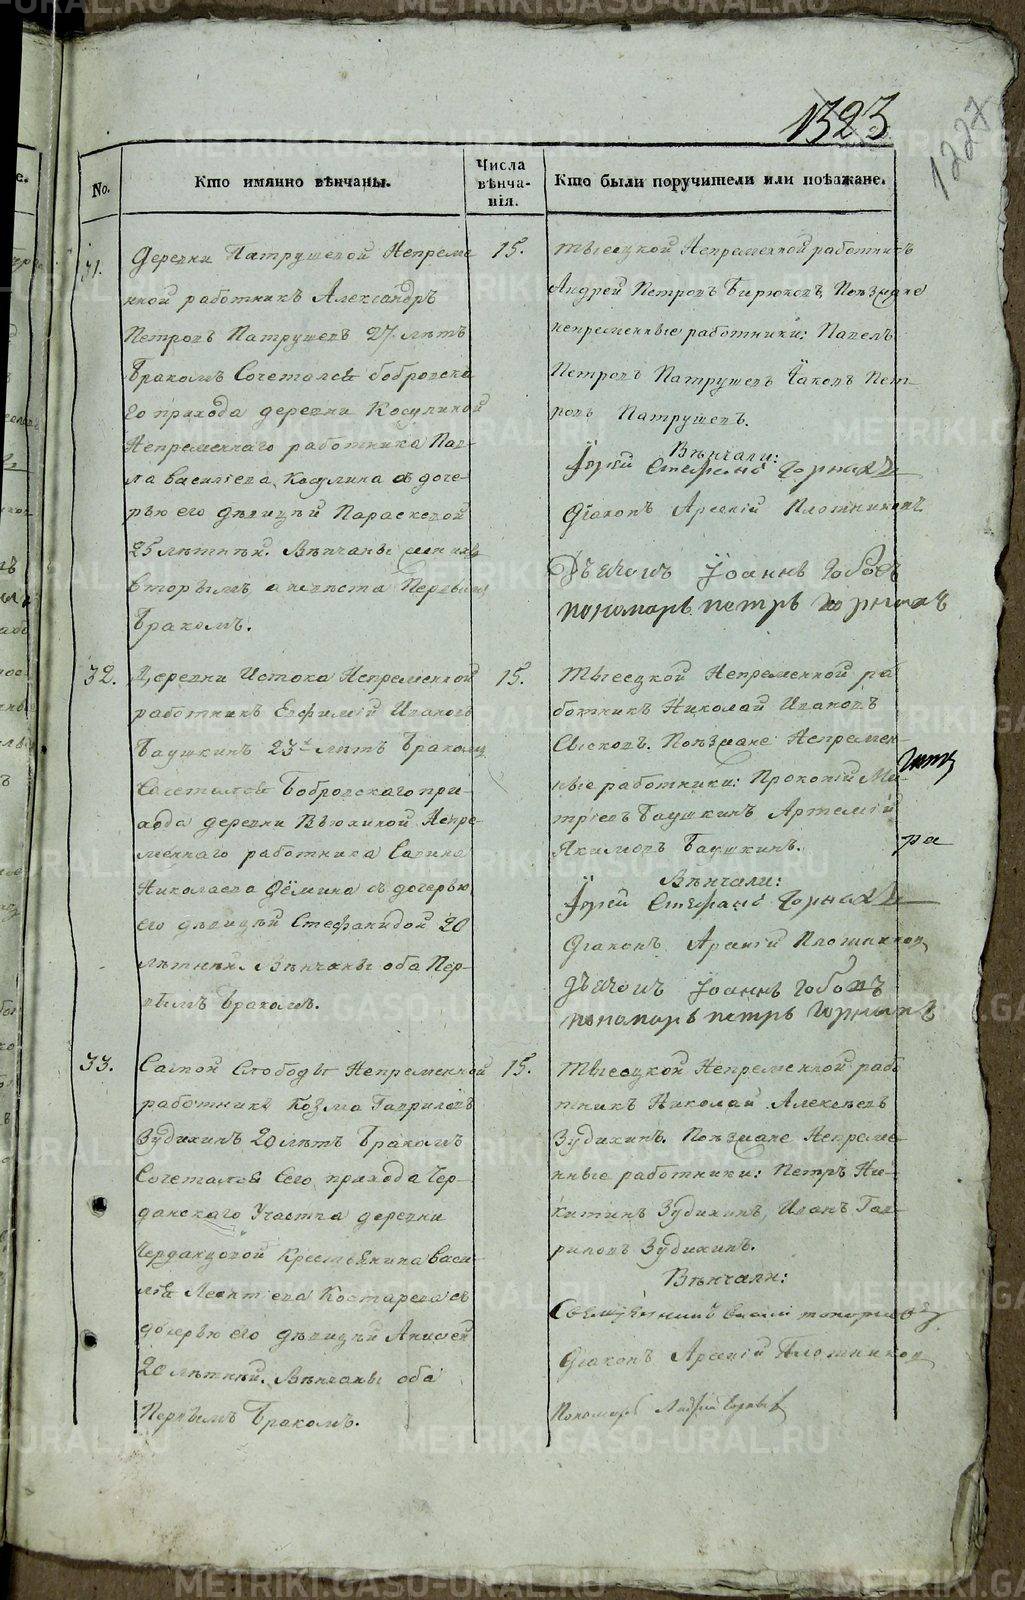 1323
1227
No.
Кто имянно вѣнчаны.
Числа вѣнча-
нія.
Кто были поручители или поѣзжане.
31.
Деревни Патрушевой Непреме
нной работникъ Александръ
Петровъ Патрушевъ 27 лѣтъ
Бракомъ Сочетался бобровска
го прихода деревни Косулиной
Непременнаго работника Пав-
ла Васильева Косулина съ доче-
рью его дѣвицѣй Параскевой
25 лѣтнѣй. Вѣнчаны
вторымъ а невѣста Первымъ
Бракомъ.
15.
Тысецкой Непременной работникъ
Андрей Петровъ Бирюковъ, Поѣзжане
непременные работники: Павелъ
Петровъ Патрушевъ Іаковъ Пет-
ровъ Патрушевъ.
Вѣнчали:
Іерей Стефанъ Горныхъ
Діаконъ Арсеній Плотниковъ
Дьячокъ Іоаннъ
пономарь петръ Горныхъ
32.
Деревни Истока Непременной
работникъ Евфимій Ивановъ
Баушкинъ 23 лѣтъ Бракомъ
Сочетался Бобровскаго при-
хода деревни Вьюхиной Непре-
меннаго работника Савина
Николаева Дёмина съ дочерью
его дѣвицѣй Стефанидой 20
лѣтнѣй. Вѣнчаны оба Пер-
вымъ Бракомъ.
15.
Тысецкой Непременной ра
ботникъ Николай Ивановъ
Поѣзжане Непремен-
ные работники: Прокопій Ми-
тріевъ Баушкинъ Артемій
Якимовъ Баушкинъ.
Вѣнчали:
Іерей Стефанъ Горныхъ
Діаконъ Арсеній Плотников
дьячокъ Іоаннъ
пономарь петръ Горныхъ
ра
33.
Самой Слободы Непременной
работникъ Козма Гавриловъ
Зудихинъ 20 лѣтъ Бракомъ
Сочетался Сего прихода Чер-
данскаго Участка деревни
Черданцовой Крестьянина Васи-
лья Леонтьева Костарева съ
дочерью его дѣвицѣй Анисьей
20 лѣтнѣй. Вѣнчаны оба
Первымъ Бракомъ.
15.
Тысецкой Непременной рабо
тникъ Николай Алексѣевъ
Зудихинъ. Поѣзжане Непреме-
нные работники: Петръ Ни-
китинъ Зудихинъ, Иванъ Гав-
риловъ Зудихинъ.
Вѣнчали:
Діаконъ Арсеній Плотников
Пономарь
METRIKI.GASO-URAL.RU